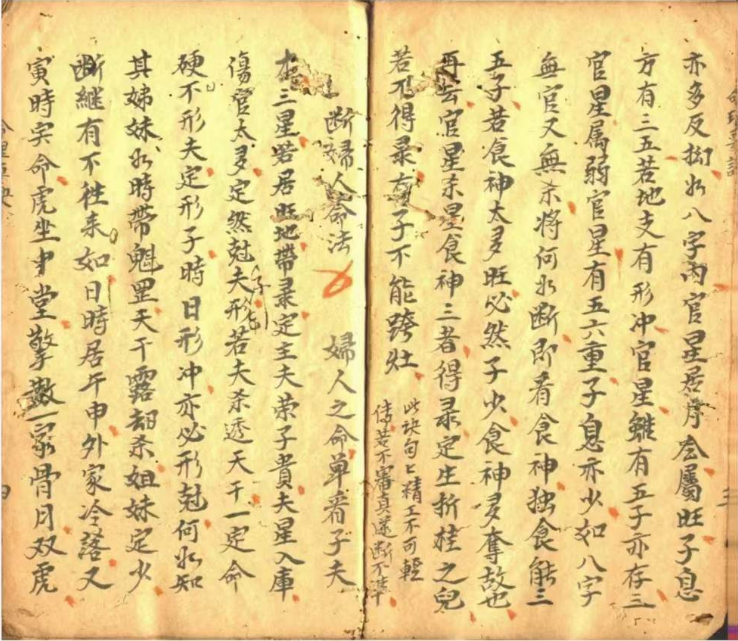 亦多反拗如八字內官星居月令屬旺子息
方有三五若地支有形冲官星雖有五子亦存三
官星屬弱官星有五六重子息亦少如八字
無官又無杀將何如斷即看食神独食能三
五子若食神太多旺必然子少食神多奪故也
再去官星杀星食神三者得录定生折桂之兒
若不得录有子不能跨灶
此块句匕精工不可輕
傳若不審真遂断不準
断婦人命法 婦人之命单看子夫
三星若居旺地帶录定主夫荣子貴夫星入庫
傷官太多定然尅夫形子若夫杀透天干一定命
硬不形夫定形子時日形冲亦必形尅何如知
其姊妹如時帶魁罡天干露刼杀姐妹定少
断繼有不往来如日時居午申外家冷落又
寅時实命虎坐中堂擎數一家骨月双虎